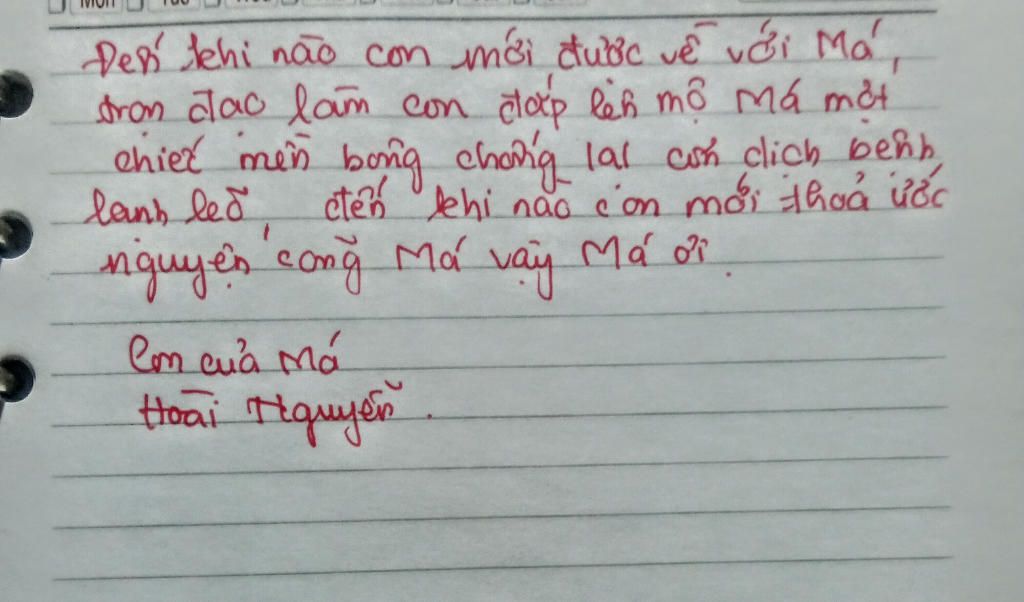 Đến khi nào con mới được về với Má,
tròn đạo làm con đắp lên mộ Má một
chiếc mền bông chống lại cơn dịch bệnh
lạnh lẽo, đến khi nào con mới thoả ước
nguyện cõng Má vậy Má ơi.
Con của Má
Hoài Nguyễn.